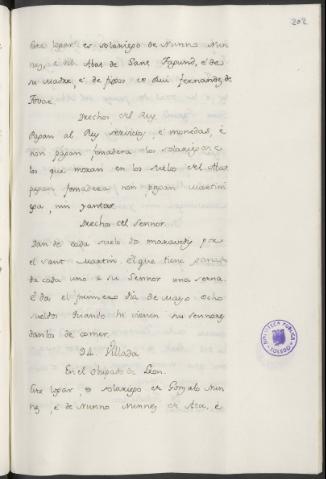 202
Este logar es solariego de Nunno Nun
nez, e del Abat de Sant Fagund, e de
su Madre, e de fijos de Rui Fernandez de
Tovar.
Drechos del Rey
Pagan al Rey servicios, e monedas, e
non pagan fonsadera los solariegos: e
los que moran en los suelos del Abat
pagan fonsadera, non pagan martini
ega, nin yantar.
Drechos del Sennor.
Dan de cada suelo do maravedis por
el Sant Martin. El que tiene
de cada uno a su Sennor una serna.
E dan el primero dia de Mayo ocho
sueldos quando hi vienen sus sennores
danlos de comer.
94. Villada
En el Obispado de Leon.
Este logar, es solariego de Gonzalo Nun
nez, e de Nunno Nunnez de Aza, e
BIBLIOTECA PUBLICA
TOLEDO